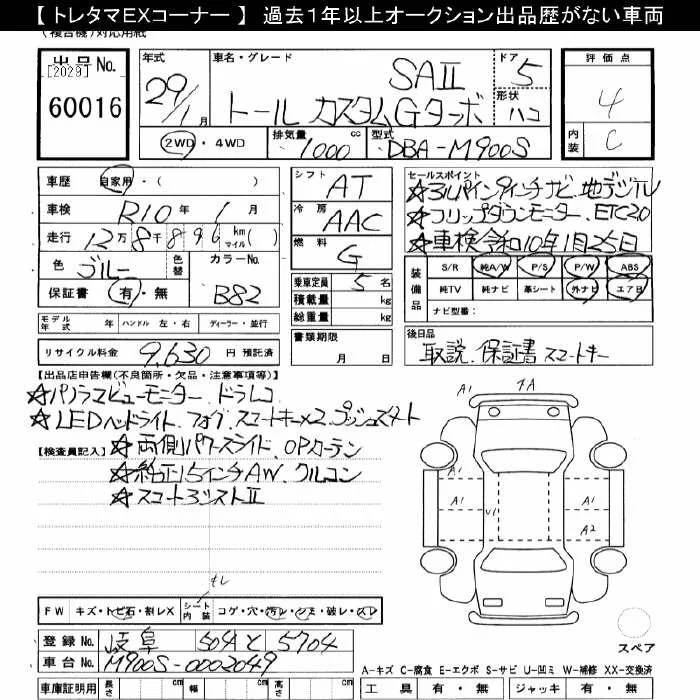 【 トレタマEXコーナー 】 過去1年以上オークション出品歴がない車両
(複合機)対応用紙
出品No.
[2029]
60016
年式 29/1月
車名・グレード SAII
トール カスタムGターボ
ドア 5
形状 ハコ
評価点 4
内装 C
2WD・4WD 排気量 1000 cc 型式 DBA-M900S
車歴 自家用・( )
車検 R10年 1月
走行 12万8千896 km マイル( )
色 ブルー 色替 カラーNo.
保証書 有・無 B82
モデル年式 年 ハンドル 左・右 ディーラー・並行
リサイクル料金 9,630 円 預託済
シフト AT
冷房 AAC
燃料 G
乗車定員 5名
積載量 kg
総重量 kg
書類期限
月 日
セールスポイント
☆3ルパイン9インチナビ 地デジTV
☆フリップダウンモニター ETC2.0
☆車検令和10年1月25日
装備品
S/R 純A/W P/S P/W ABS
純TV 純ナビ 革シート 外ナビ エアB
ナビ型番:
後日品
取説 保証書 スマートキー
【出品店申告欄(不良箇所・欠品・注意事項等)】
☆パノラマビューモニター ドラレコ
☆LEDヘッドライト フォグ スマートキー×2 プッシュスタート
【検査員記入】
☆両側パワースライド OPカーテン
☆純正15インチAW クルコン
☆スマートアシストII
キレ
FW キズ・トビ石・割レX シート内装 コゲ・穴・汚レ・シミ・破レ・スレ
登録No. 岐阜 504 と 5704
車台No. M900S-0002049
車庫証明用 長さ cm 幅 cm 高さ cm
A1 A
A1 A1 V1 A1 A2
スペア
A-キズ C-腐食 E-エクボ S-サビ U-凹ミ W-補修 XX-交換済
工具 有・無 ジャッキ 有・無